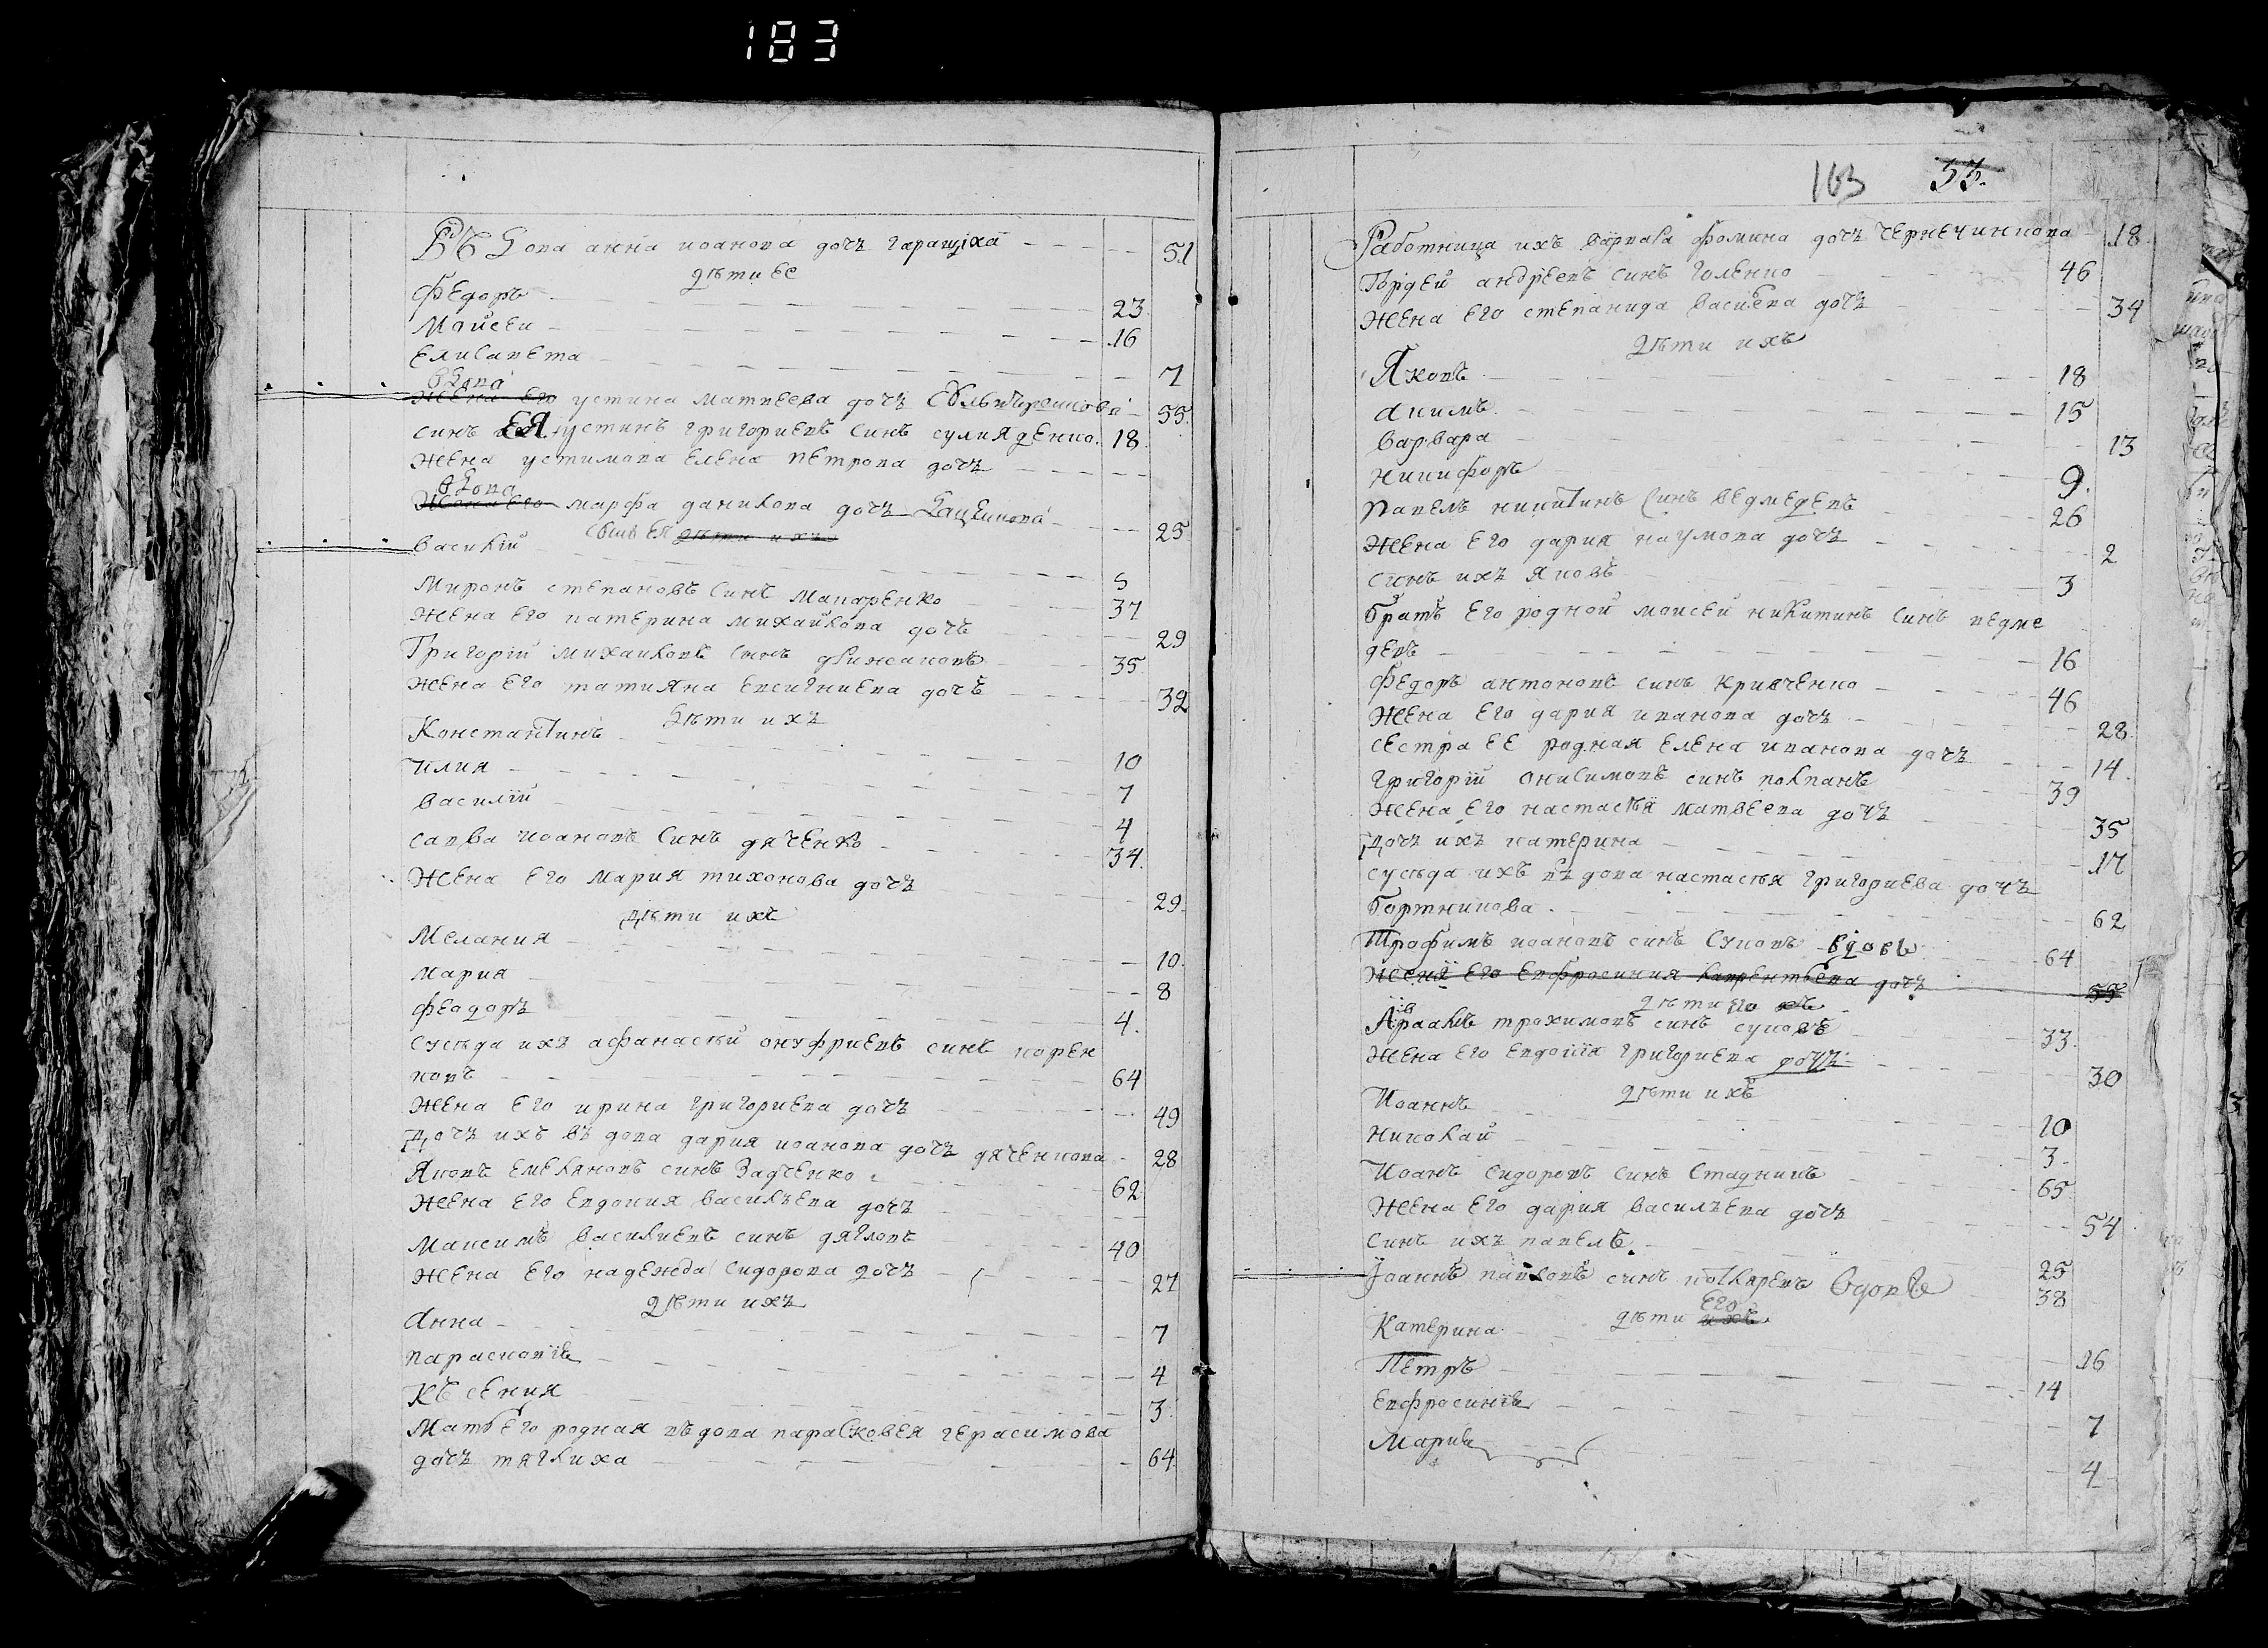 183
Въ Дова анна иоанова дочъ гаращiха 51
дѣти ее
Федоръ 23
Мойсей 16
Елисавета 7
вдова
Жена его устина матвеева дочъ 55
синъ ЕЯ устинъ григориевъ синъ 18
жена устимова елена петрова дочъ
вдова
Жена его марфа данилова дочъ Кацеинова 25
синъ ея дѣти ихъ
василiй 5
миронъ степановъ синъ макаренко 37
жена его катерина михайлова дочъ 29
Григорiй михаиловъ синъ 35
жена его татияна дочъ 32
Дѣти ихъ
Константинъ 10
илия 7
василiй 4
савва иоановъ синъ дяченко 34
жена его мария тихонова дочъ 29
Дѣти ихъ
Мелания 10
мария 8
феодоръ 4
сусѣда ихъ афанасѣй онуфриевъ синъ корен
ковъ 64
жена его ирина григориева дочъ 49
Дочъ ихъ въ дова дария иоанова дочъ дяченкова 28
Яковъ емеляновъ синъ Задченко 62
жена его евдокия василъева дочъ
Максимъ василиевъ синъ дягловъ 40
жена его надежда сидорова дочъ 27
дѣти ихъ
Анна 7
параскопiя 4
Къ сения 3
Мать его родная въдова парасковея герасимова
дочъ тяглиха 64
163 53.
Работница ихъ варвара фомина дочъ чернечинкова 18
Гордей андреевъ синъ голенко 46
жена его степанида василева дочъ 34
Дѣти ихъ
Яковъ 18
акимъ 15
варвара 13
никифоръ 9
павелъ никитинъ синъ ведмедевъ 26
жена его дария наумова дочъ 2
синъ ихъ яковъ 3
братъ его родной моисей никитинъ синъ ведме
девъ 16
федоръ антоновъ синъ кривченко 46
жена его дария иванова дочъ 28
сестра ее родная елена иванова дочъ 14
григорiй онисимовъ синъ колпакъ 39
жена его настасѣя матвеева дочъ 35
Дочъ ихъ катерина 17
сусѣда ихъ въдова настасѣя григориева дочъ
бортникова 62
Трофимъ иоановъ синъ суковъ вдовъ 64
жена его евфросиния дочъ 55
дѣти его ихъ
трохимовъ синъ суковъ 33
жена его евдокiя григориева дочъ 30
дѣти ихъ
Иоаннъ 10
николай 3
Иоанъ сидоровъ синъ стадникъ 65
жена его дария василъева дочъ 54
синъ ихъ павелъ 25
Iоаннъ павловъ синъ вдовъ 38
дѣти Его ихъ
Катерина 16
Петръ 14
евфросинiя 7
Мария 4